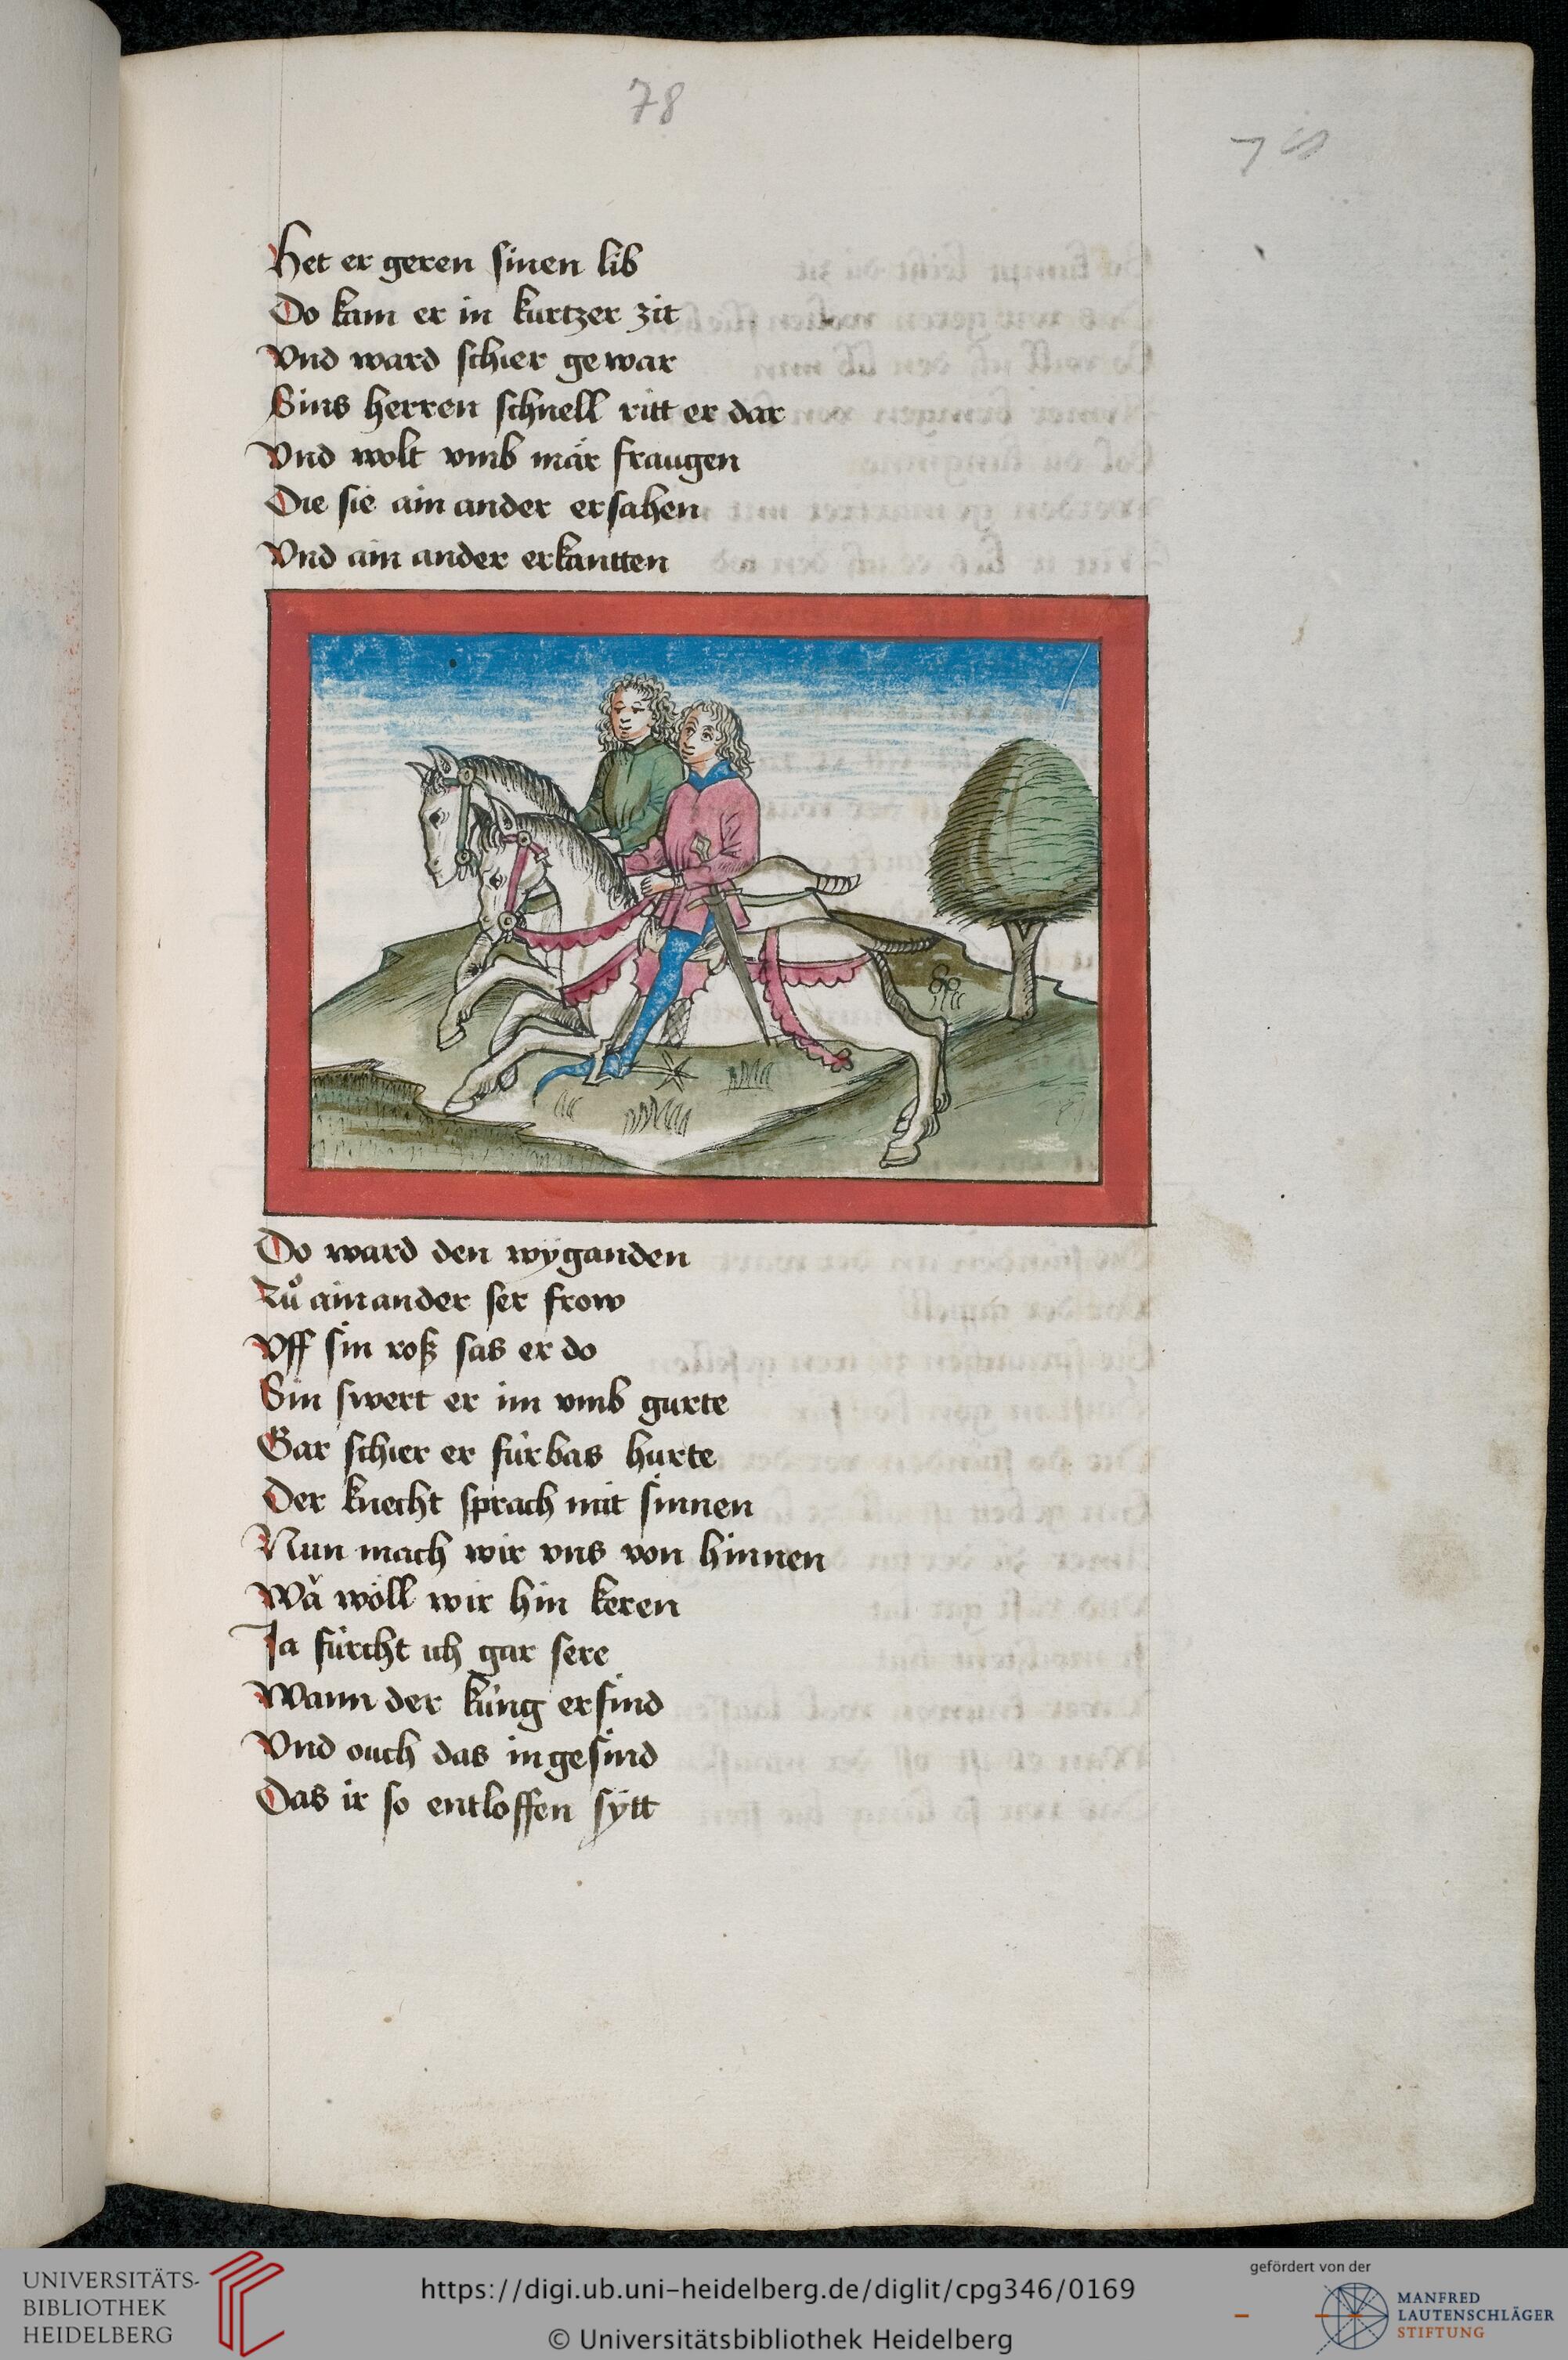 78
78
Het er geren sinen lib
Do kam er in kurtzer zit
Vnd ward schier gewar
Sins herren schnell ritt er dar
Vnd wolt vmb mär fraugen
Die sie ain ander ersahen
Vnd ain ander erkantten
Do ward den wyganden
Zů ainander ser frow
Vff sin roß sas er do
Sin swert er im vmb gurte
Gar schier er fúrbas hurte
Der knecht sprach mit sinnen
Nun mach wir vns von hinnen
Wǎ wöll wir hin keren
Ja fúrcht ich gar sere
Wann der kúng ersind
Vnd ouch das ingesind
Das ir so entloffen sytt
UNIVERSITÄTS-
BIBLIOTHEK
HEIDELBERG
https://digi.ub.uni-heidelberg.de/diglit/cpg346/0169
© Universitätsbibliothek Heidelberg
gefördert von der
MANFRED
LAUTENSCHLÄGER
STIFTUNG